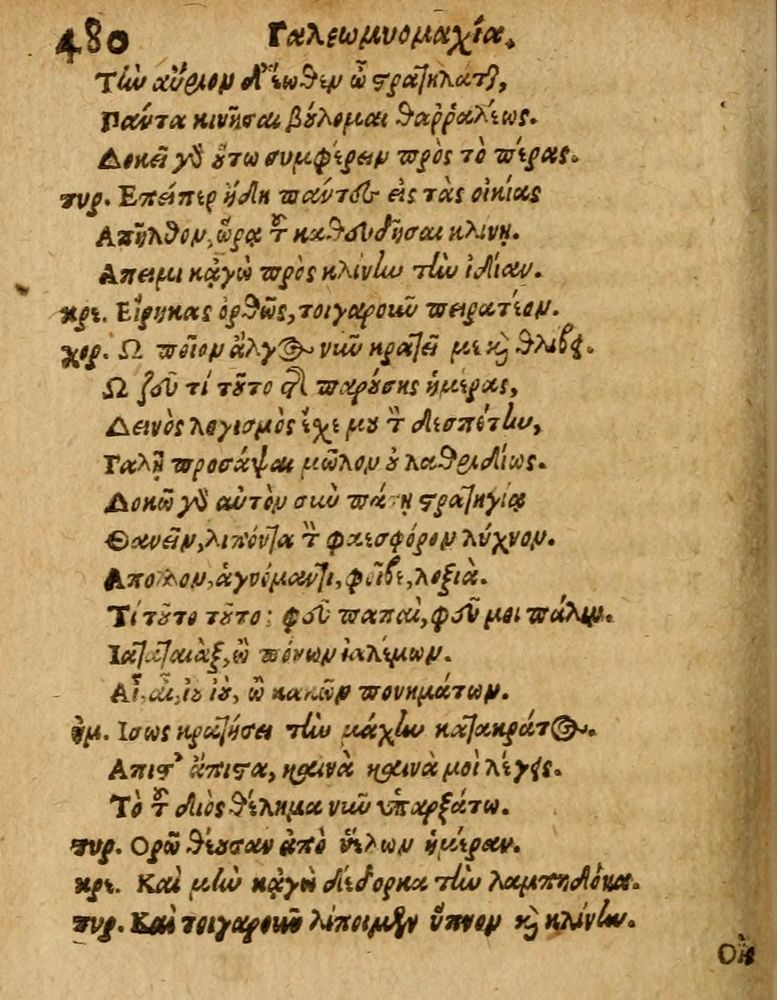 480 Γαλεωμυομαχία.
Τὴν αὔριον δ' ἕωθεν ὦ στρατηλάται,
Πάντα κινῆσαι βούλομαι θαῤῥαλέως.
Δοκεῖ γὰρ οὕτω συμφέρειν πρὸς τὸ πέρας.
τυρ. Επείπερ ἤδη πάντες εἰς τὰς οἰκίας
Απῆλθον, ὥρα τοῦ καθευδῆσαι κλίνῃ.
Απειμι κᾀγὼ πρὸς κλίνην τὴν ἰδίαν.
κρε. Εἴρηκας ὀρθῶς, τοιγαροῦν πειρατέον.
χορ. Ω ποῖον ἄλγος νῦν κρατεῖ με καὶ θλίβει.
Ω ζεῦ τί τοῦτο τῆς παρούσης ἡμέρας,
Δεινὸς λογισμὸς ἔχε μου τὸν δεσπότην,
Γαλῇ προσάψαι μῶλον οὐ λαθριδίως.
Δοκῶ γὰρ αὐτὸν σὺν πάσῃ στρατηγίᾳ
Θανεῖν, λιπόντα τὸν φαεσφόρον λύχνον.
Απολλον, ἁγνόμαντι, φοῖβε, λοξιὰ.
Τί τοῦτο τοῦτο; φεῦ παπαὶ, φεῦ μοι πάλιν.
Ιαταταιὰξ, ὢ πόνων ἰαλέμων.
Αἶ, αἶ, ἰοὺ ἰοὺ, ὢ κακῶν πονημάτων.
ἡμ. Ισως κρατήσει τὴν μάχην κατακράτος.
Απιστ' ἄπιστα, καινὰ καινὰ μοὶ λέγεις.
Τὸ τοῦ διὸς θέλημα νῦν ὑπαρξάτω.
τυρ. Ορῶ θέουσαν ἀπὸ ὕελων ἡμέραν.
κρε. Καὶ μὴν κᾀγὼ δέδορκα τὴν λαμπηδόνα.
τυρ. Καὶ τοιγαροῦν λίποιμεν ὕπνον καὶ κλίνην.
Οὐ